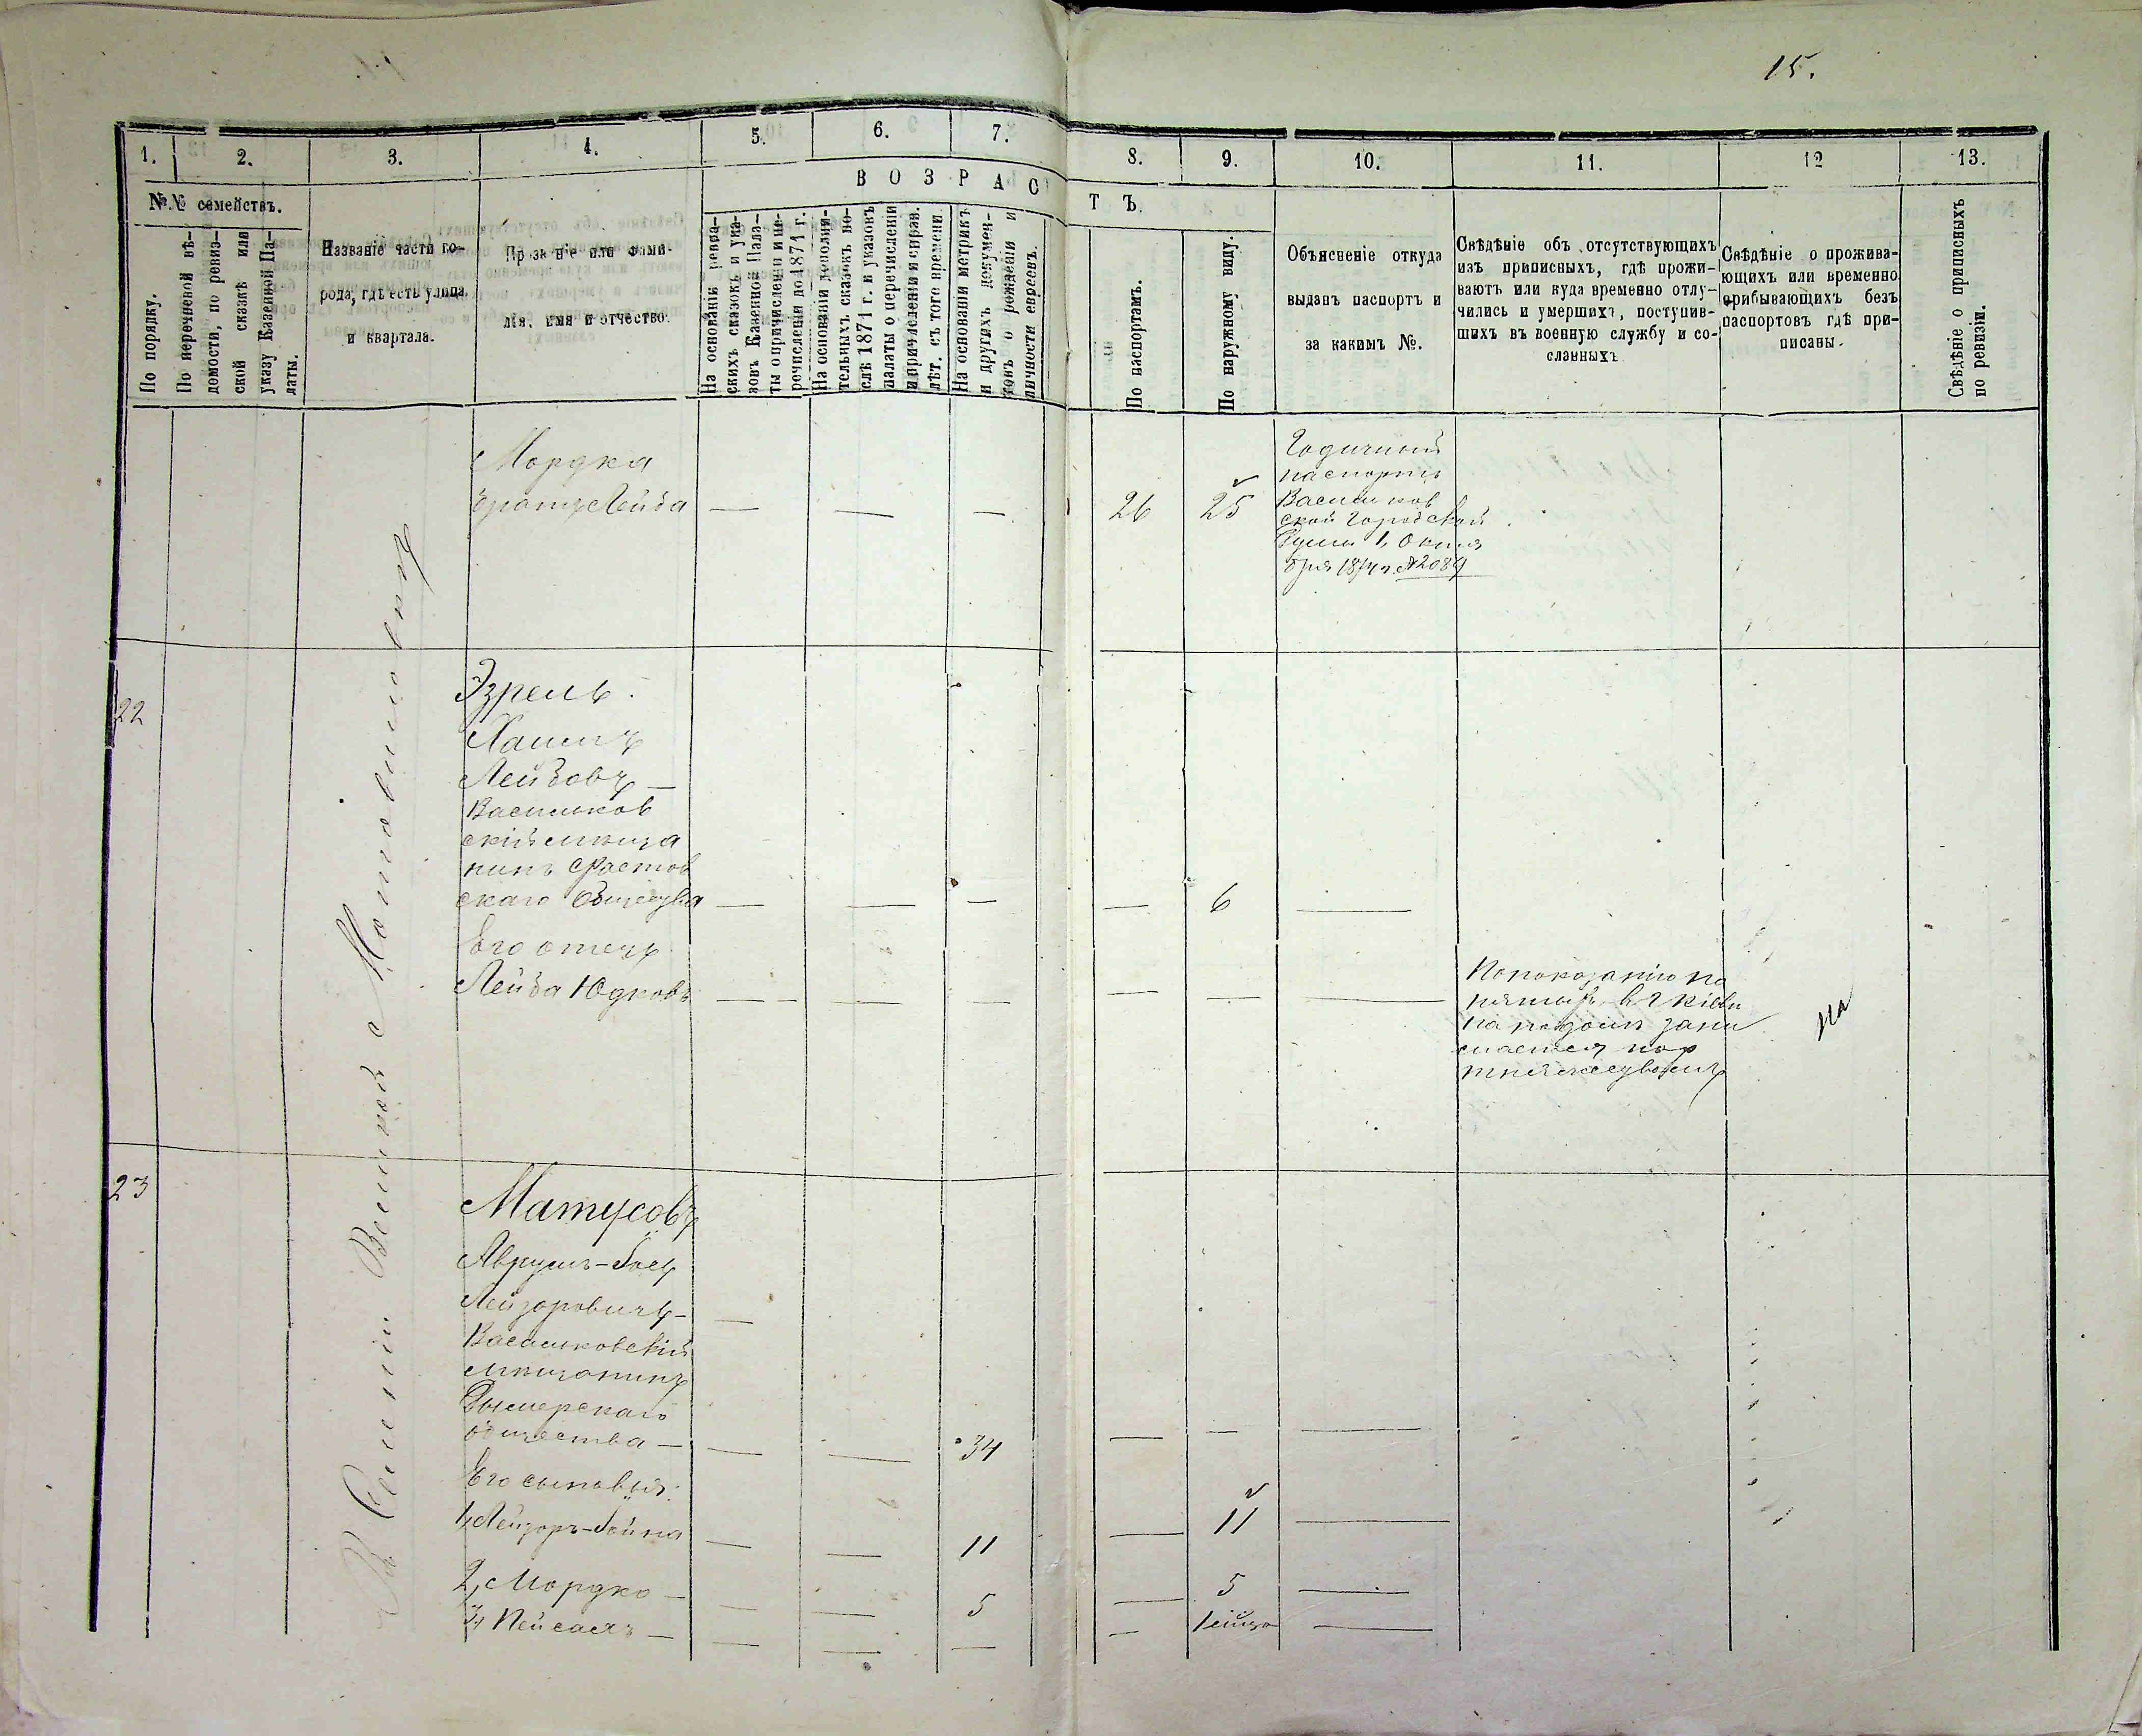 15.
1.
2.
3.
4.
5.
6.
7.
8.
9.
10.
11.
12
13.
№№ семействъ.
По порядку.
По перечневой вѣ-
домости, по ревиз-
ской сказкѣ или
указу Казенной Па-
латы.
Названіе части го-
рода, гдѣ есть улица
и квартала.
Прозваніе или фами-
лія, имя и отчество.
ВОЗРАСТЪ.
На основаніи ревиз-
скихъ сказокъ и ука-
зовъ Казенной Пала-
ты о причисленіи и пе-
речисленіи до 1871 г.
На основаніи дополни-
тельныхъ сказокъ по-
слѣ 1871 г. и указовъ
палаты о перечисленіи
и причисленіи и справ.
лѣт. съ того времени.
На основаніи метрикъ
и другихъ докумен-
товъ о рожденіи и
личности евреевъ.
По паспортамъ.
По наружному виду.
Объясненіе откуда
выданъ паспортъ и
за какимъ №.
Свѣдѣніе объ отсутствующихъ
изъ приписныхъ, гдѣ прожи-
ваютъ или куда временно отлу-
чились и умершихъ, поступив-
шихъ въ военную службу и со-
сланныхъ
Свѣдѣніе о прожива-
ющихъ или временно
прибывающихъ безъ
паспортовъ гдѣ при-
писаны.
Свѣдѣніе о приписныхъ
по ревизіи.
Мордка
братъ Лейба — — — 26 25
Годичный
паспортъ
Васильков
ской Городской
Думы 1 Октя
бря 1874 г. №2089
22
Эзрель
Хаимъ
Лейбовъ —
Васильков
скій мѣща
нинъ Фастов
скаго Общества — — — — 6 —
Его отецъ
Лейба Юдковъ — — — — — —
По показанію по
нятыхъ в г Кіевѣ
на подолѣ зани
мается пор
на
23
Матусовъ
Аврумъ-Босъ
Лейзоровичъ —
Васильковскій
мѣщанинъ
Дымерскаго
общества — — — 34 — — —
Его сыновья:
1, Лейзоръ-Бойна — — 11 — 11 —
2, Мордко — — — 5 — 5 —
3, Пейсахъ — — — — — —